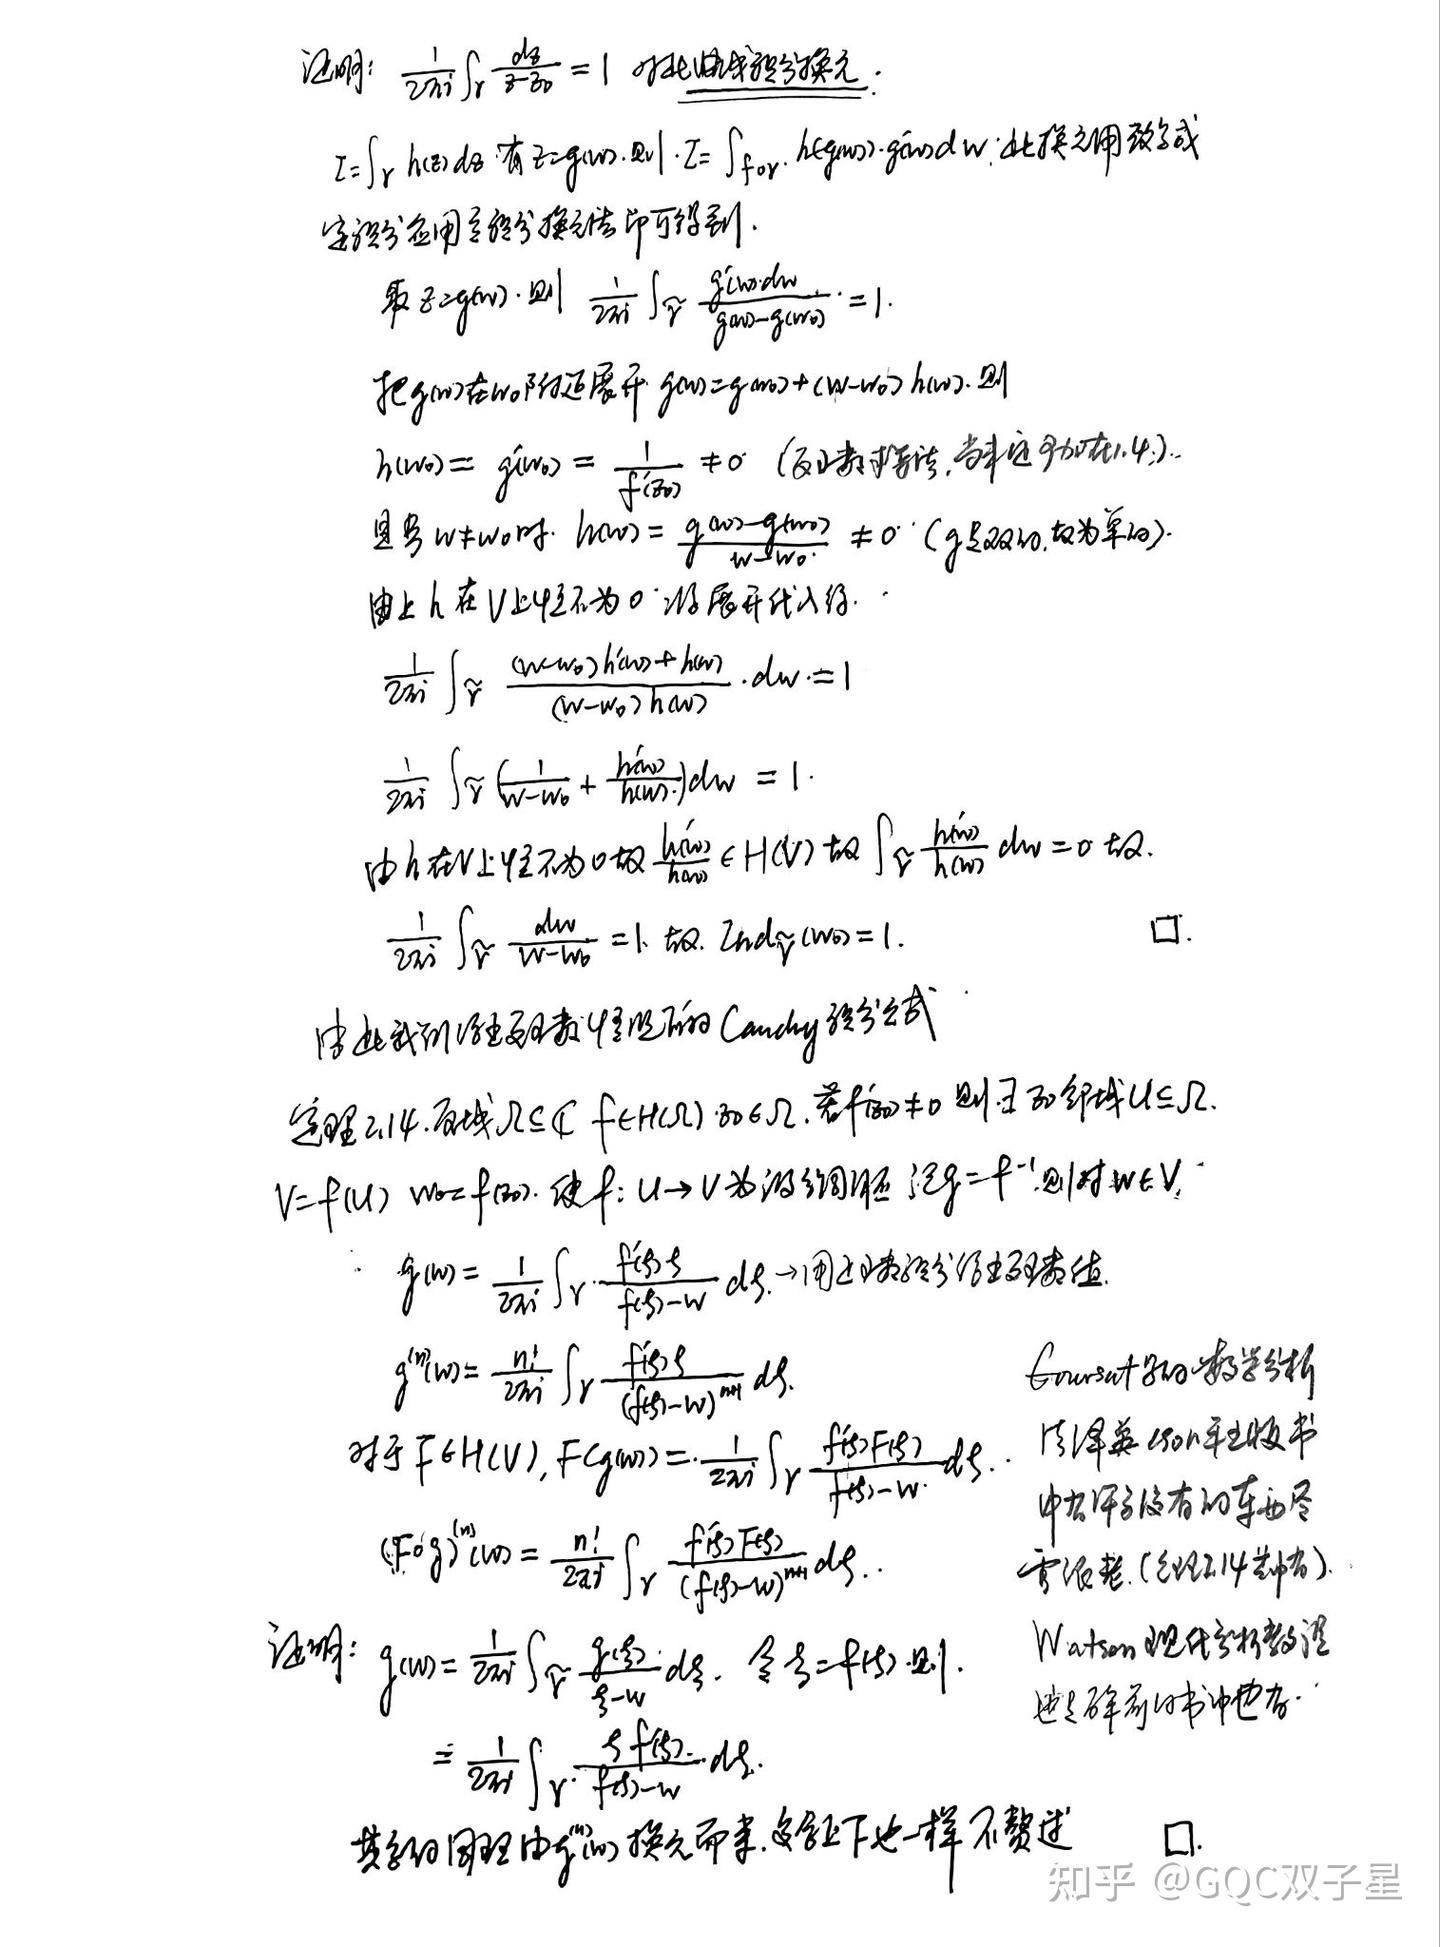 证明: \frac{1}{2πi}∫_γ \frac{dz}{z-z_0} = 1 对此曲线积分换元.
I=∫_γ h(z)dz. 有 z=g(w). 则. I=∫_{f∘γ} h(g(w))·g'(w)dw. 此换元用致成
定积分应用定积分换元法即可得到.
取 z=g(w). 则 \frac{1}{2πi}∫_{\tildeγ} \frac{g'(w)dw}{g(w)-g(w_0)} = 1.
把g(w)在w_0附近展开 g(w)=g(w_0)+(w-w_0)h(w). 则
h(w_0) = g'(w_0) = \frac{1}{f'(z_0)} ≠ 0 (反函数求导法, 当然这可加在1.4.)..
且当 w≠w_0时. h(w) = \frac{g(w)-g(w_0)}{w-w_0} ≠ 0 (g是双的, 故为单的).
由上 h 在 V上恒不为0 将展开代入得.
\frac{1}{2πi}∫_{\tildeγ} \frac{(w-w_0)h'(w)+h(w)}{(w-w_0)h(w)}·dw = 1
\frac{1}{2πi}∫_{\tildeγ} (\frac{1}{w-w_0} + \frac{h'(w)}{h(w)})dw = 1.
由h在V上恒不为0 故 \frac{h'(w)}{h(w)} ∈ H(V) 故 ∫_{\tildeγ} \frac{h'(w)}{h(w)} dw = 0 故.
\frac{1}{2πi}∫_{\tildeγ} \frac{dw}{w-w_0} = 1. 故. Ind_{\tildeγ}(w_0) = 1. □.
由此我们得出反函数恒服从的Cauchy积分公式
定理2.14. 区域Ω⊆ℂ f∈H(Ω) z_0∈Ω. 若f'(z_0)≠0 则∃z_0邻域U⊆Ω.
V=f(U) w_0=f(z_0). 使 f: U→V为同胚 记g=f^{-1} 则对w∈V.
g(w) = \frac{1}{2πi}∫_γ \frac{f'(ζ)ζ}{f(ζ)-w} dζ. → 用正函数积分得出反函数值.
g^{(n)}(w) = \frac{n!}{2πi}∫_γ \frac{f'(ζ)ζ}{(f(ζ)-w)^{n+1}} dζ.
对于 F∈H(V), F(g(w)) = \frac{1}{2πi}∫_γ \frac{f'(ζ)F(ζ)}{f(ζ)-w} dζ..
(F∘g)^{(n)}(w) = \frac{n!}{2πi}∫_γ \frac{f'(ζ)F(ζ)}{(f(ζ)-w)^{n+1}} dζ..
Goursat 的数学分析
出版书
中有许多没有的东西尽
(定理2.14其中有).
Watson 现代分析教程
也是百年前的书中也有.
证明: g(w) = \frac{1}{2πi}∫_{\tildeγ} \frac{g(ξ)}{ξ-w} dξ. 令ξ=f(ζ). 则.
= \frac{1}{2πi}∫_γ \frac{ζf'(ζ)}{f(ζ)-w} dζ.
其余的同理由g^{(n)}(w)换元而来. 复合上下也一样 不赘述 □.
知乎 @GQC双子星